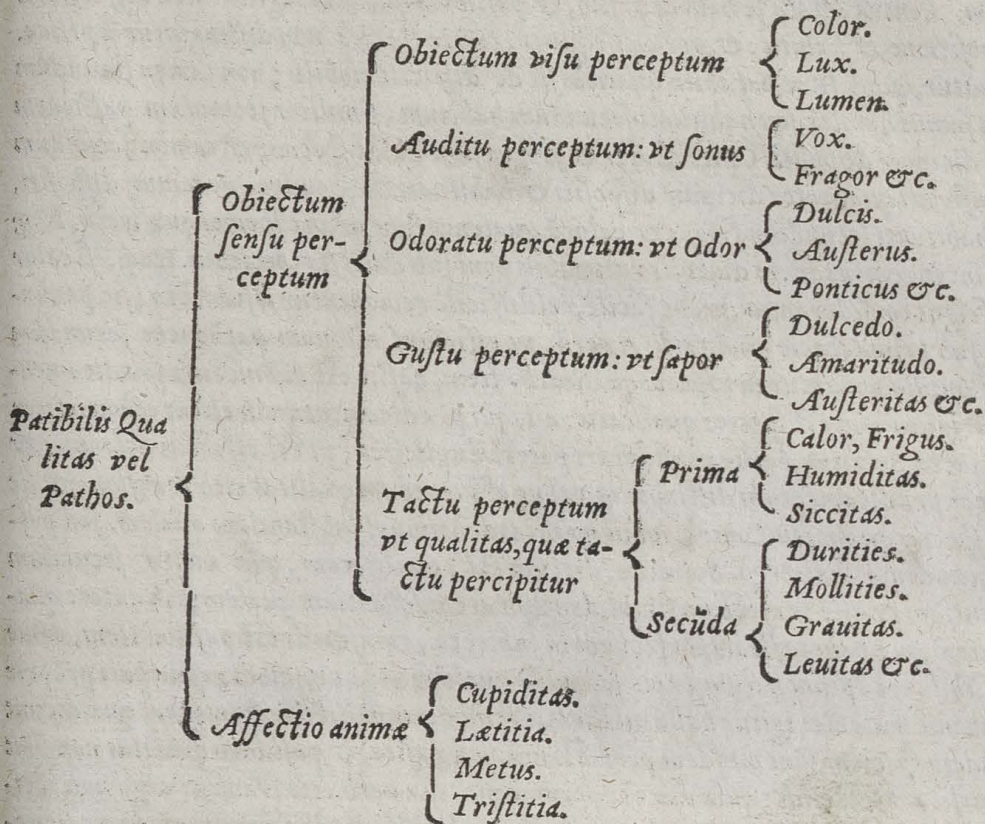 Patibilis Qua
litas vel
Pathos.
Obiectum
ſenſu per-
ceptum
Obiectum viſu perceptum
Color.
Lux.
Lumen.
Auditu perceptum: vt ſonus
Vox.
Fragor &c.
Odoratu perceptum: vt Odor
Dulcis.
Auſterus.
Ponticus &c.
Guſtu perceptum: vt ſapor
Dulcedo.
Amaritudo.
Auſteritas &c.
Tactu perceptum
vt qualitas, quæ ta-
ctu percipitur
Prima
Calor, Frigus.
Humiditas.
Siccitas.
Secũda
Durities.
Mollities.
Grauitas.
Leuitas &c.
Affectio animæ
Cupiditas.
Lætitia.
Metus.
Triſtitia.